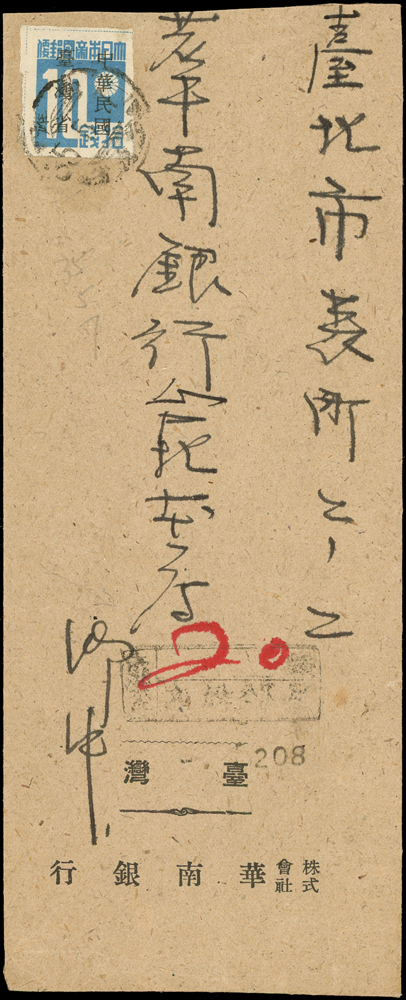 臺北市表町二ノ二
華南銀行臺北支店
御中
大日本帝國郵便
10
拾錢
中華民國
臺灣省
20
208
臺灣
株式會社華南銀行